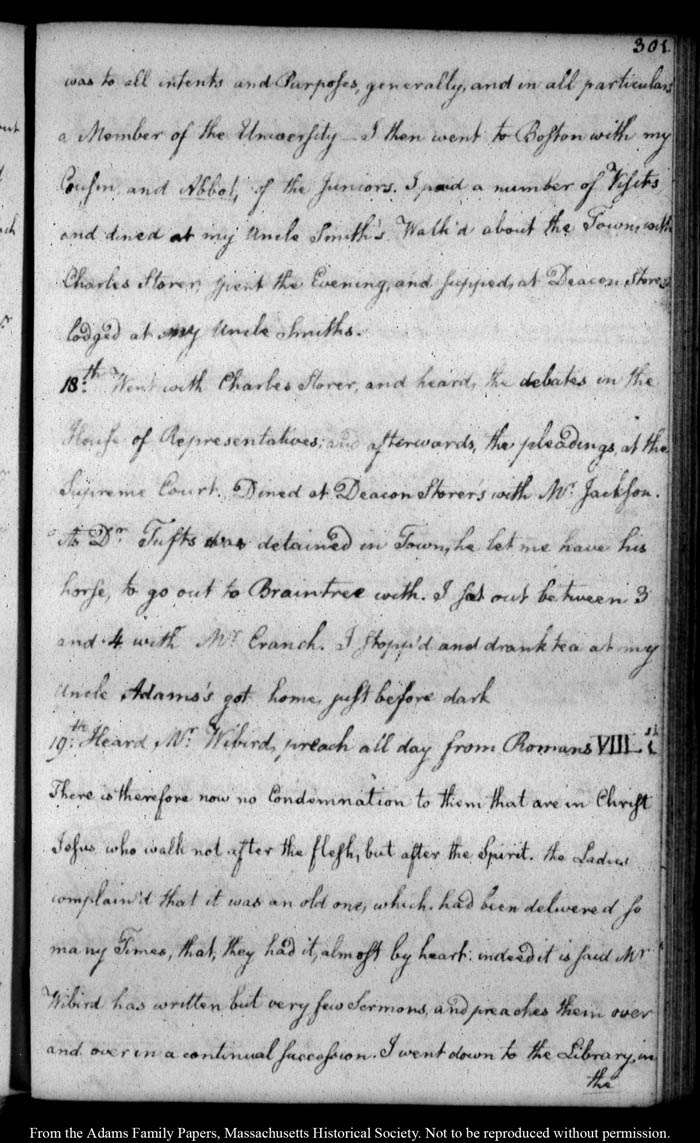 301.
was to all intents and Purposes, generally, and in all particulars
a Member of the University — I then went to Boston with my
Cousin and Abbot, of the Juniors. I paid a number of Visits
and dined at my Uncle Smith's. Walk'd about the Town, with
Charles Storer, spent the Evening, and supped, at Deacon Storer's
lodged at my Uncle Smiths.
18.th Went with Charles Storer, and heard, the debates in the
House of Representatives; and afterwards, the pleadings, at the
Supreme Court. Dined at Deacon Storer's with Mr. Jackson.
As Dr. Tufts was detained in Town, he let me have his
horse, to go out to Braintree with. I sat out between 3
and 4 with Mr. Cranch. I stopp'd and drank tea at my
Uncle Adams's got home, just before dark
19.th Heard Mr. Wibird, preach all day from Romans VIII. 1.st
There is therefore now no Condemnation to them that are in Christ
Jesus who walk not after the flesh, but after the Spirit. the Ladies
complain'd that it was an old one, which had been delivered so
many Times, that, they had it, almost by heart: indeed it is said Mr
Wibird has written but very few Sermons, and preaches them over
and over in a continual succession. I went down to the Library, in
the
From the Adams Family Papers, Massachusetts Historical Society. Not to be reproduced without permission.